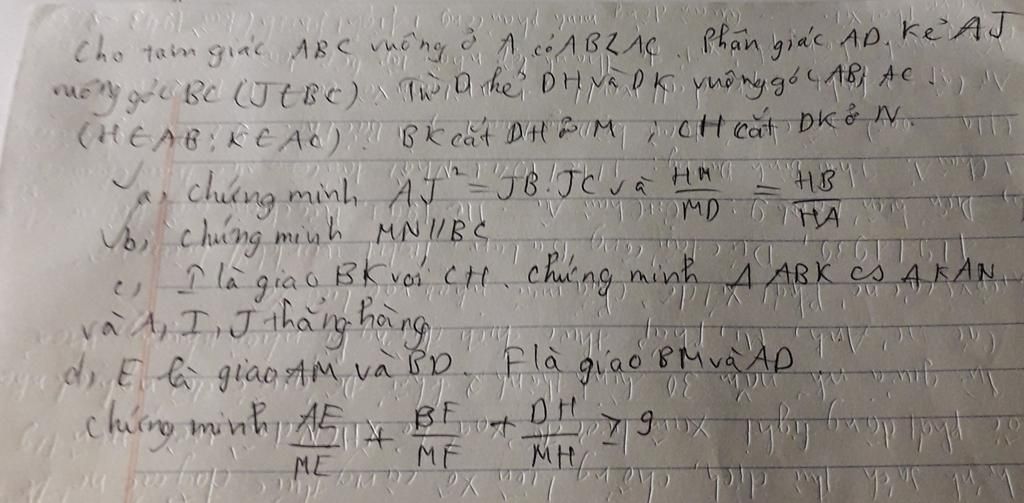 Cho tam giác ABC vuông ở A có AB < AC. Phân giác AD. Kẻ AJ
vuông góc BC (J ∈ BC). Từ D kẻ DH và DK vuông góc AB, AC.
(H ∈ AB; K ∈ AC). BK cắt DH ở M; CH cắt DK ở N.
a, Chứng minh AJ² = JB.JC và HM/MD = HB/HA
b, Chứng minh MN // BC
c, I là giao BK với CH. Chứng minh Δ ABK ∽ Δ KAN
và A, I, J thẳng hàng
d, E là giao AM và BD. F là giao BM và AD.
Chứng minh AE/ME + BF/MF + DH/MH ≥ 9